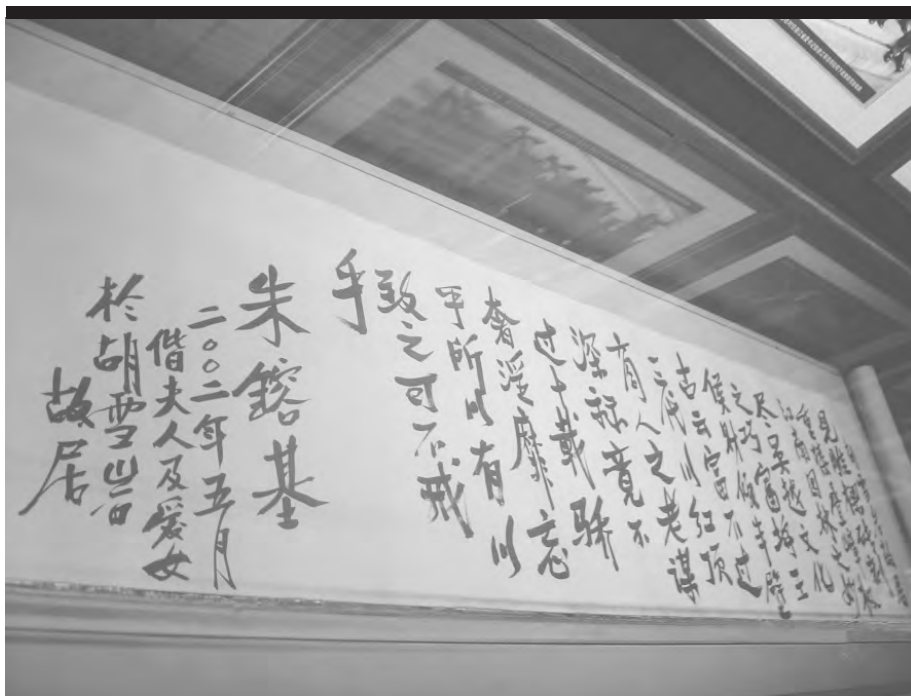 江南园林之妙
尽吴越文化
之巧富埒王
侯财倾半壁
古云富不过
三代以红顶
商人之老谋
深算竟不
过十载骄
奢淫靡忘
乎所以有以
致之可不戒
乎
朱镕基
二〇〇二年五月
偕夫人及爱女
於胡雪岩
故居